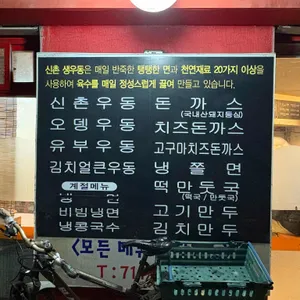 신촌 생우동은 매일 반죽한 탱탱한 면과 천연재료 20가지 이상을
사용하여 육수를 매일 정성스럽게 끓여 만들고 있습니다.
신촌우동
오뎅우동
유부우동
김치얼큰우동
계절메뉴
냉면
비빔냉면
냉콩국수
돈까스
(국내산돼지등심)
치즈돈까스
고구마치즈돈까스
냉쫄면
떡만둣국
(떡국 / 만둣국)
고기만두
김치만두
<모든 메
T:71